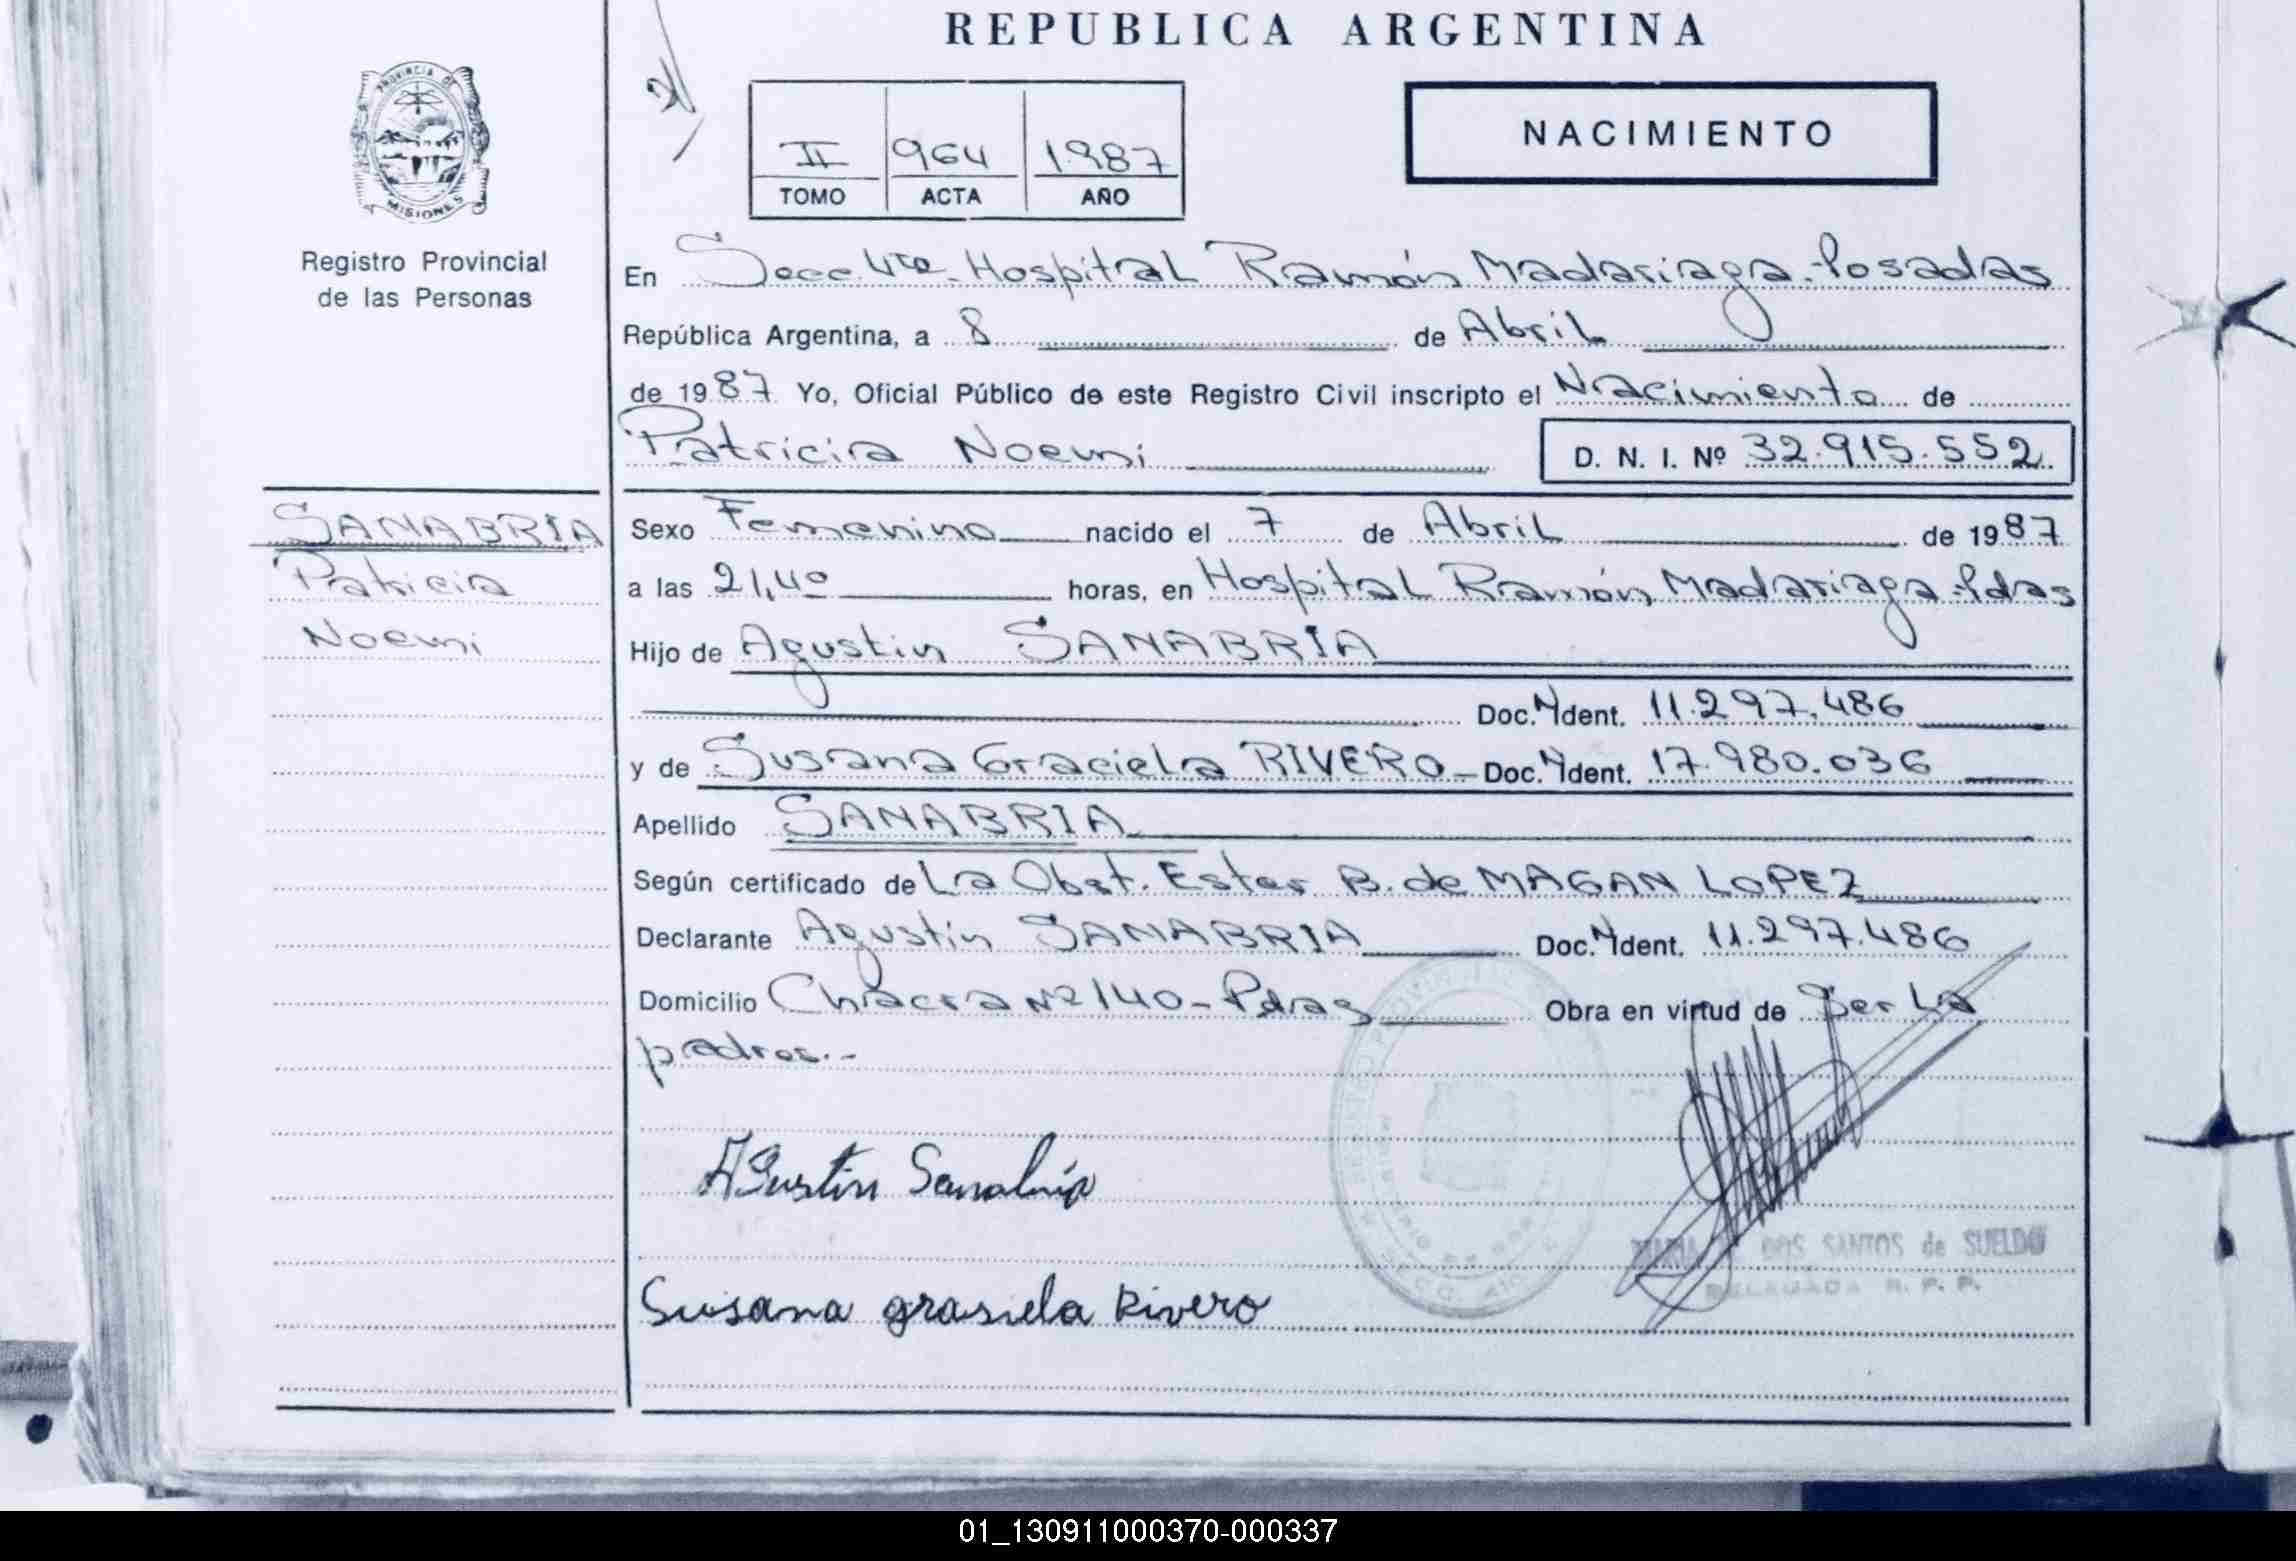 REPUBLICA ARGENTINA
PROVINCIA DE
MISIONES
Registro Provincial
de las Personas
II 964 1987
TOMO ACTA AÑO
NACIMIENTO
En Secc. 4ta. Hospital Ramón Madariaga - Posadas
República Argentina, a 8 de Abril
de 1987 Yo, Oficial Público de este Registro Civil inscripto el Nacimiento de
Patricia Noemi D. N. I. Nº 32.915.552
SANABRIA
Patricia
Noemi
Sexo Femenino nacido el 7 de Abril de 1987
a las 21,40 horas, en Hospital Ramón Madariaga - Pdas
Hijo de Agustin SANABRIA
Doc. Ident. 11.297.486
y de Susana Graciela RIVERO - Doc. Ident. 17.980.036
Apellido SANABRIA
Según certificado de La Obst. Ester B. de MAGAN LOPEZ
Declarante Agustin SANABRIA Doc. Ident. 11.297.486
Domicilio Chacra Nº 140 - Pdas Obra en virtud de Ser La
padres.-
Agustin Sanabria
DOS SANTOS de SUELDO
DELEGADA R. P. P.
Susana grasiela Rivero
01_130911000370-000337